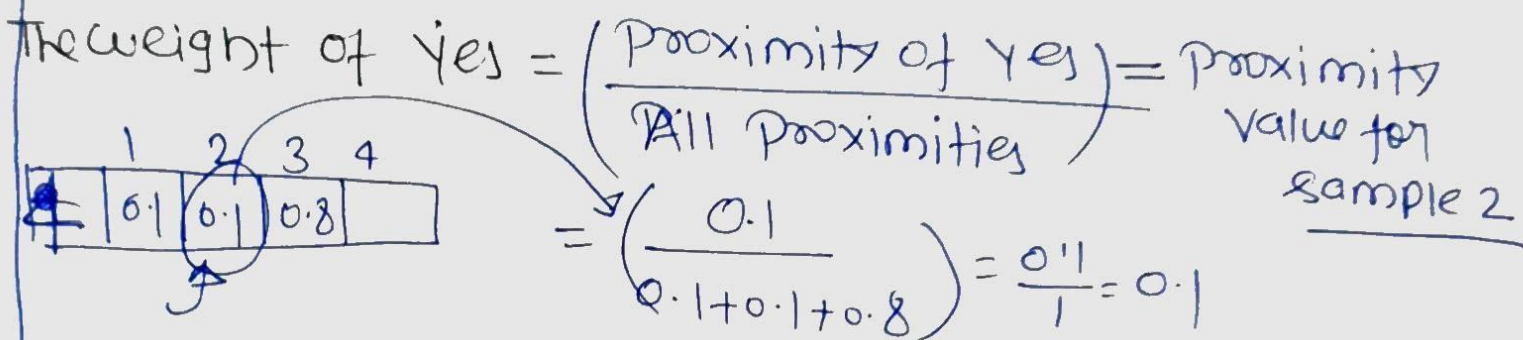 The weight of Yes = (Proximity of Yes / All Proximities) = Proximity value for sample 2
1 2 3 4
4 0.1 0.1 0.8
= (0.1 / 0.1+0.1+0.8) = 0.1 / 1 = 0.1